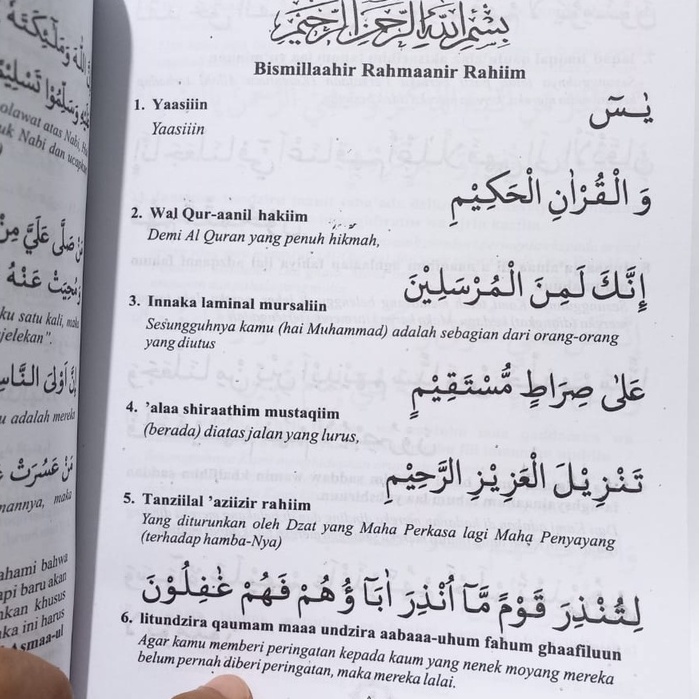 بِسْمِ اللّٰهِ الرَّحْمٰنِ الرَّحِيْمِ
Bismillaahir Rahmaanir Rahiim
يٰسٓ
1. Yaasiiin
Yaasiiin
وَ الْقُرْاٰنِ الْحَكِيْمِ
2. Wal Qur-aanil hakiim
Demi Al Quran yang penuh hikmah,
اِنَّكَ لَمِنَ الْمُرْسَلِيْنَ
3. Innaka laminal mursaliin
Sesungguhnya kamu (hai Muhammad) adalah sebagian dari orang-orang
yang diutus
عَلٰى صِرَاطٍ مُّسْتَقِيْمٍ
4. ’alaa shiraathim mustaqiim
(berada) diatas jalan yang lurus,
تَنْزِيْلَ الْعَزِيْزِ الرَّحِيْمِ
5. Tanziilal ’aziizir rahiim
Yang diturunkan oleh Dzat yang Maha Perkasa lagi Maha Penyayang
(terhadap hamba-Nya)
لِتُنْذِرَ قَوْمًا مَّآ اُنْذِرَ اٰبَآؤُهُمْ فَهُمْ غٰفِلُوْنَ
6. litundzira qaumam maaa undzira aabaaa-uhum fahum ghaafiluun
Agar kamu memberi peringatan kepada kaum yang nenek moyang mereka
belum pernah diberi peringatan, maka mereka lalai.
olawat atas Nabi,
uk Nabi dan
صَلَّى عَلَيَّ
عَنْهُ
ku satu kali,
jelekan".
اَوْلَى
u adalah mereka
عَسُرَتْ
nannya, maka
ahami bahwa
api baru akan
kan khusus
ka ini harus
Asmaa-ul